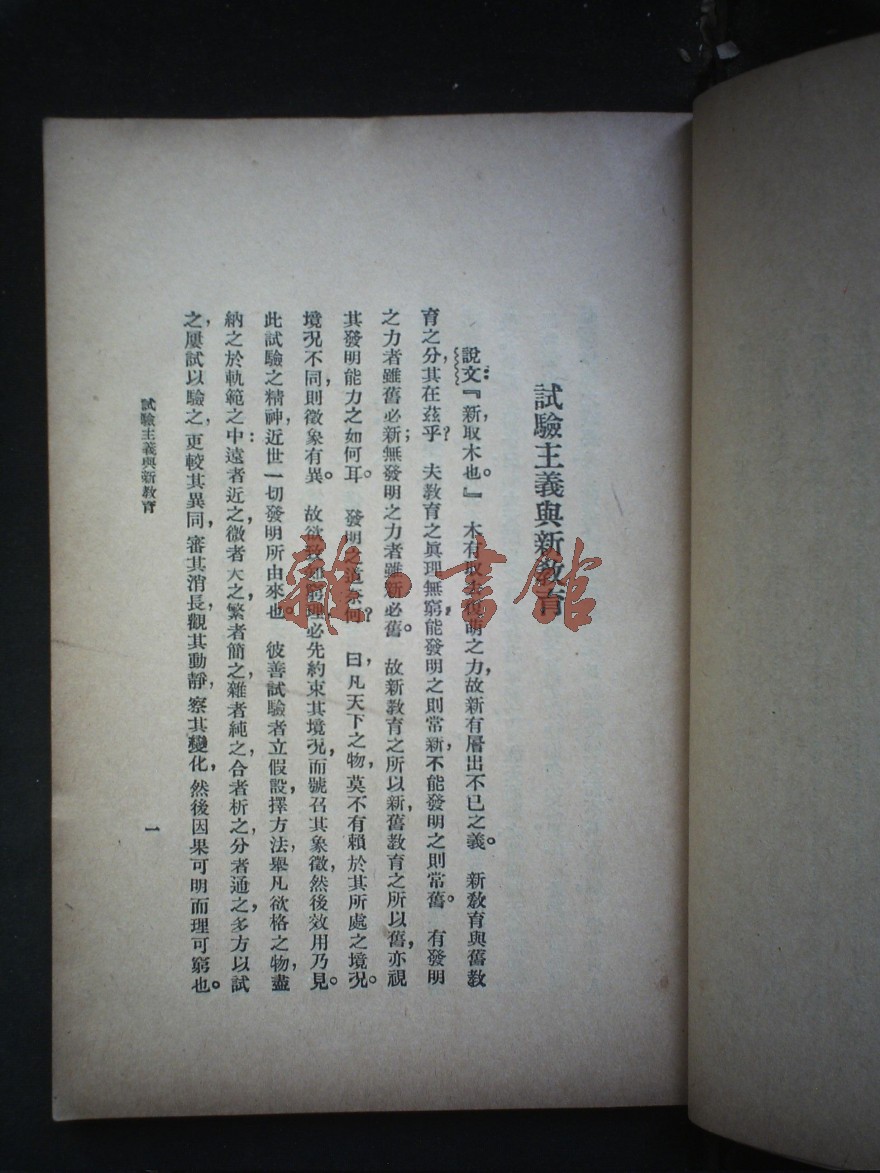 試驗主義與新教育
說文：『新，取木也。』木有取去復萌之力，故新有層出不已之義。新教育與舊教
育之分，其在茲乎？夫教育之眞理無窮，能發明之則常新，不能發明之則常舊。有發明
之力者雖舊必新；無發明之力者雖新必舊。故新教育之所以新，舊教育之所以舊，亦視
其發明能力之如何耳。發明之道奈何？曰，凡天下之物，莫不有賴於其所處之境況。
境況不同，則徵象有異。故欲致知窮理必先約束其境況，而號召其象徵，然後效用乃見。
此試驗之精神，近世一切發明所由來也。彼善試驗者立假設，擇方法，舉凡欲格之物，盡
納之於軌範之中：遠者近之，微者大之，繁者簡之，雜者純之，合者析之，分者通之，多方以試
之，屢試以驗之，更較其異同，審其消長，觀其動靜，察其變化，然後因果可明而理可窮也。
試驗主義與新教育
一
雜·書館